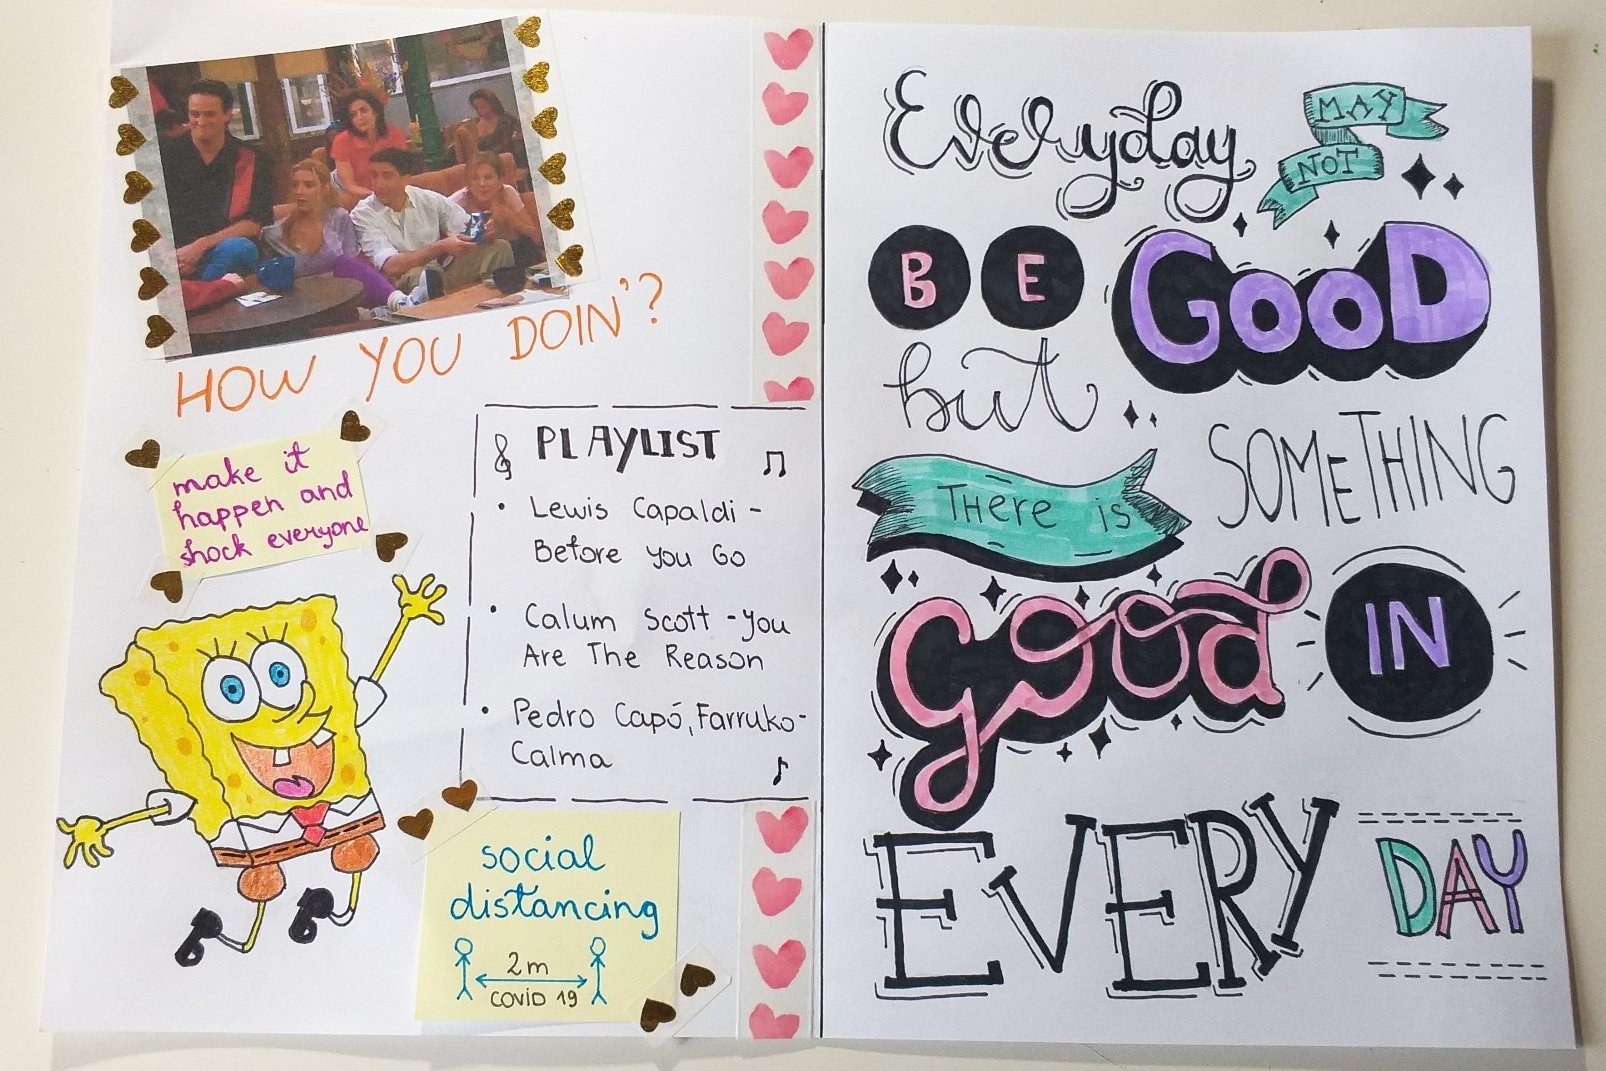 HOW YOU DOIN'?
make it
happen and
shock everyone
PLAYLIST
• Lewis Capaldi -
Before You Go
• Calum Scott - You
Are The Reason
• Pedro Capó, Farruko -
Calma
social
distancing
2m
COVID 19
Everyday
MAY
NOT
BE GOOD
but
SOMETHING
THere is
good IN
EVERY DAY